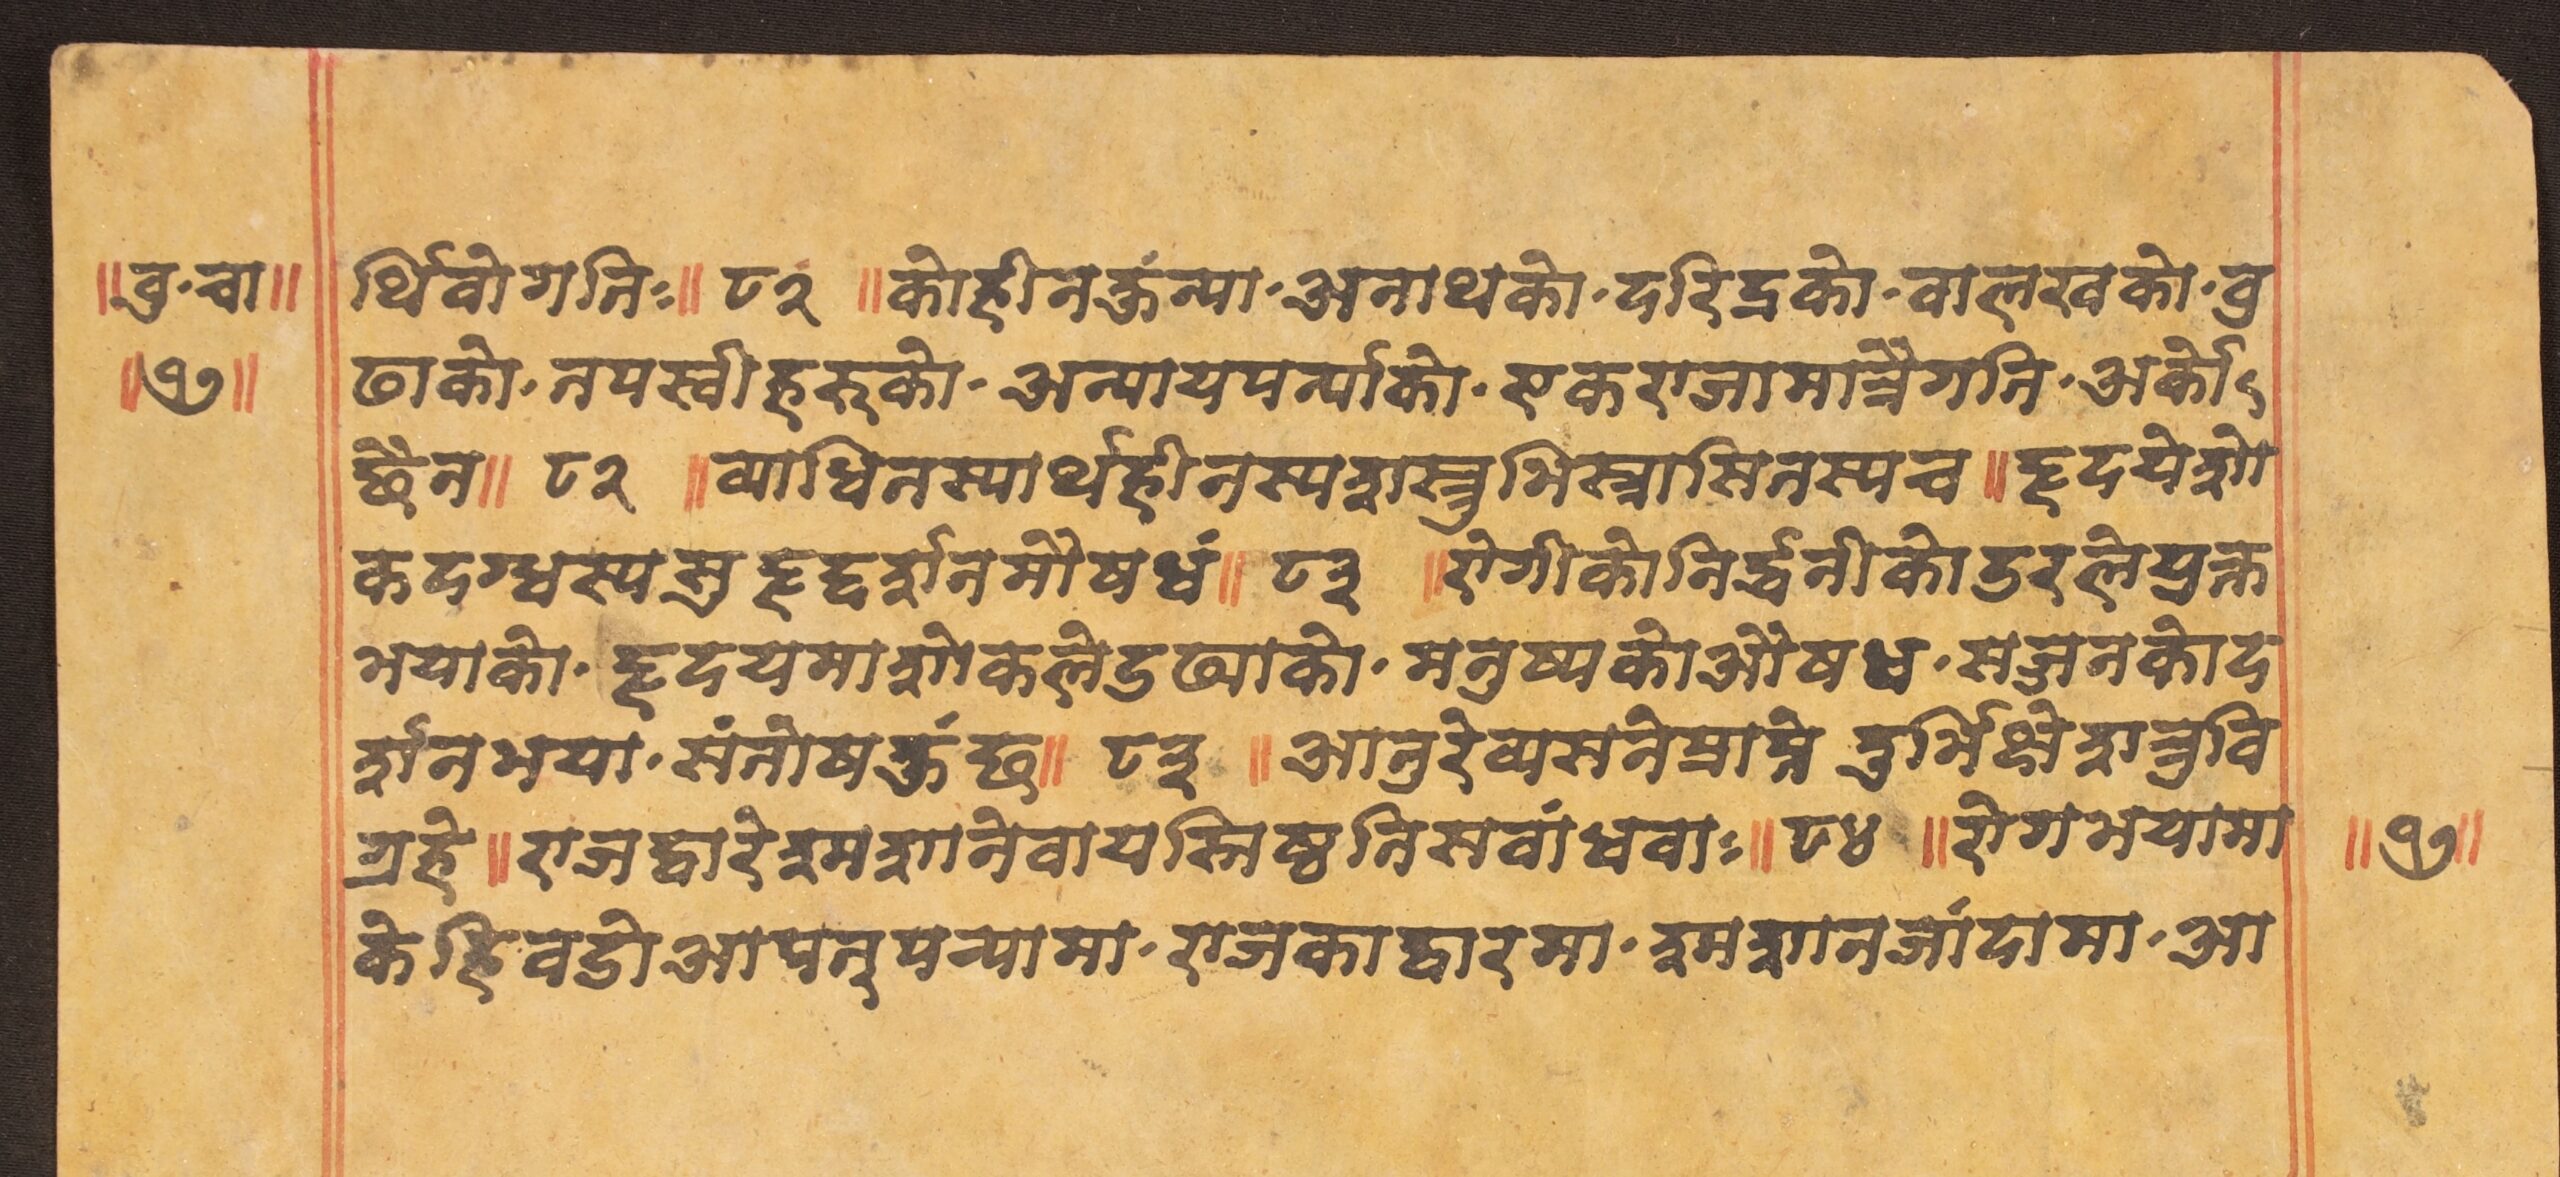 ॥वु·चा॥ र्थिवोगतिः॥ ८२ ॥कोहीनक्तंन्या·अनाथको·दरिद्रको·वालखको·वु
॥७॥ ढाको·तपस्वीहरुको·अन्यायपर्न्याको·एकराजामात्रैगति·अर्को
छैन॥ ८२ ॥व्याधितस्यार्थहीनस्यशत्रुभिस्त्रासितस्यच॥हृदयेशो
कदग्धस्यसुहृद्दर्शनमौषधं॥ ८३ ॥रोगीकोनिर्द्धनीकोडरलेयुक्त
भयाको·हृदयमाशोकलेडढ्याको·मनुष्यकोऔषध·सज्जनकोद
र्शनभया·संतोषक्तंछ॥ ८३ ॥आतुरेव्यसनेप्राप्ते दुर्भिक्षेशत्रुवि
ग्रहे॥राजद्वारेश्मशानेवायस्तिष्ठतिसवांधवाः॥ ८४ ॥रोगभयामा
केहिवडोआपत्पर्यामा·राजकाद्वारमा·श्मशानजांदामा·आ
॥७॥